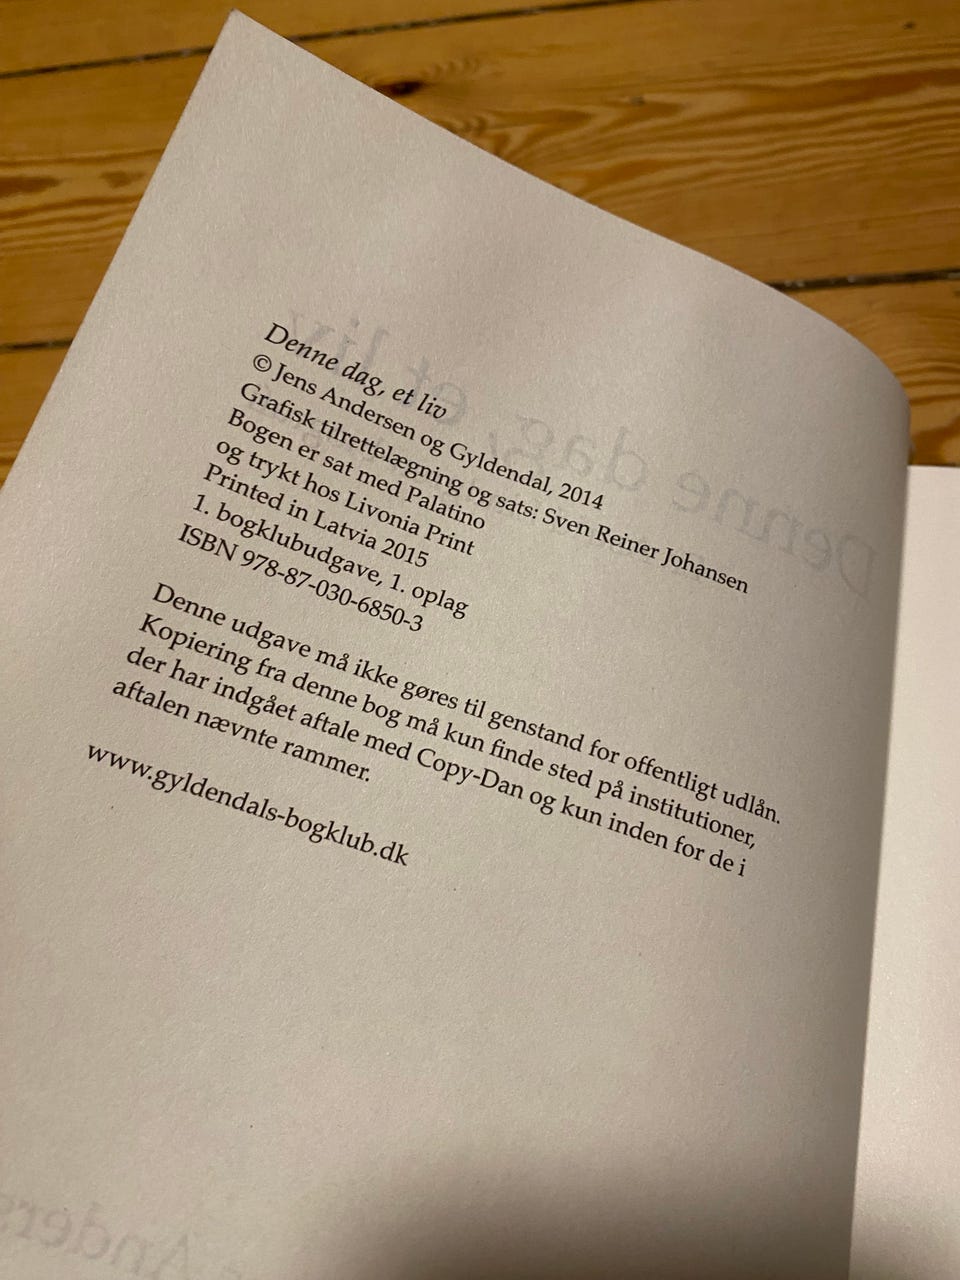 Denne dag, et liv
© Jens Andersen og Gyldendal, 2014
Grafisk tilrettelægning og sats: Sven Reiner Johansen
Bogen er sat med Palatino
og trykt hos Livonia Print
Printed in Latvia 2015
1. bogklubudgave, 1. oplag
ISBN 978-87-030-6850-3
Denne udgave må ikke gøres til genstand for offentligt udlån.
Kopiering fra denne bog må kun finde sted på institutioner,
der har indgået aftale med Copy-Dan og kun inden for de i
aftalen nævnte rammer.
www.gyldendals-bogklub.dk